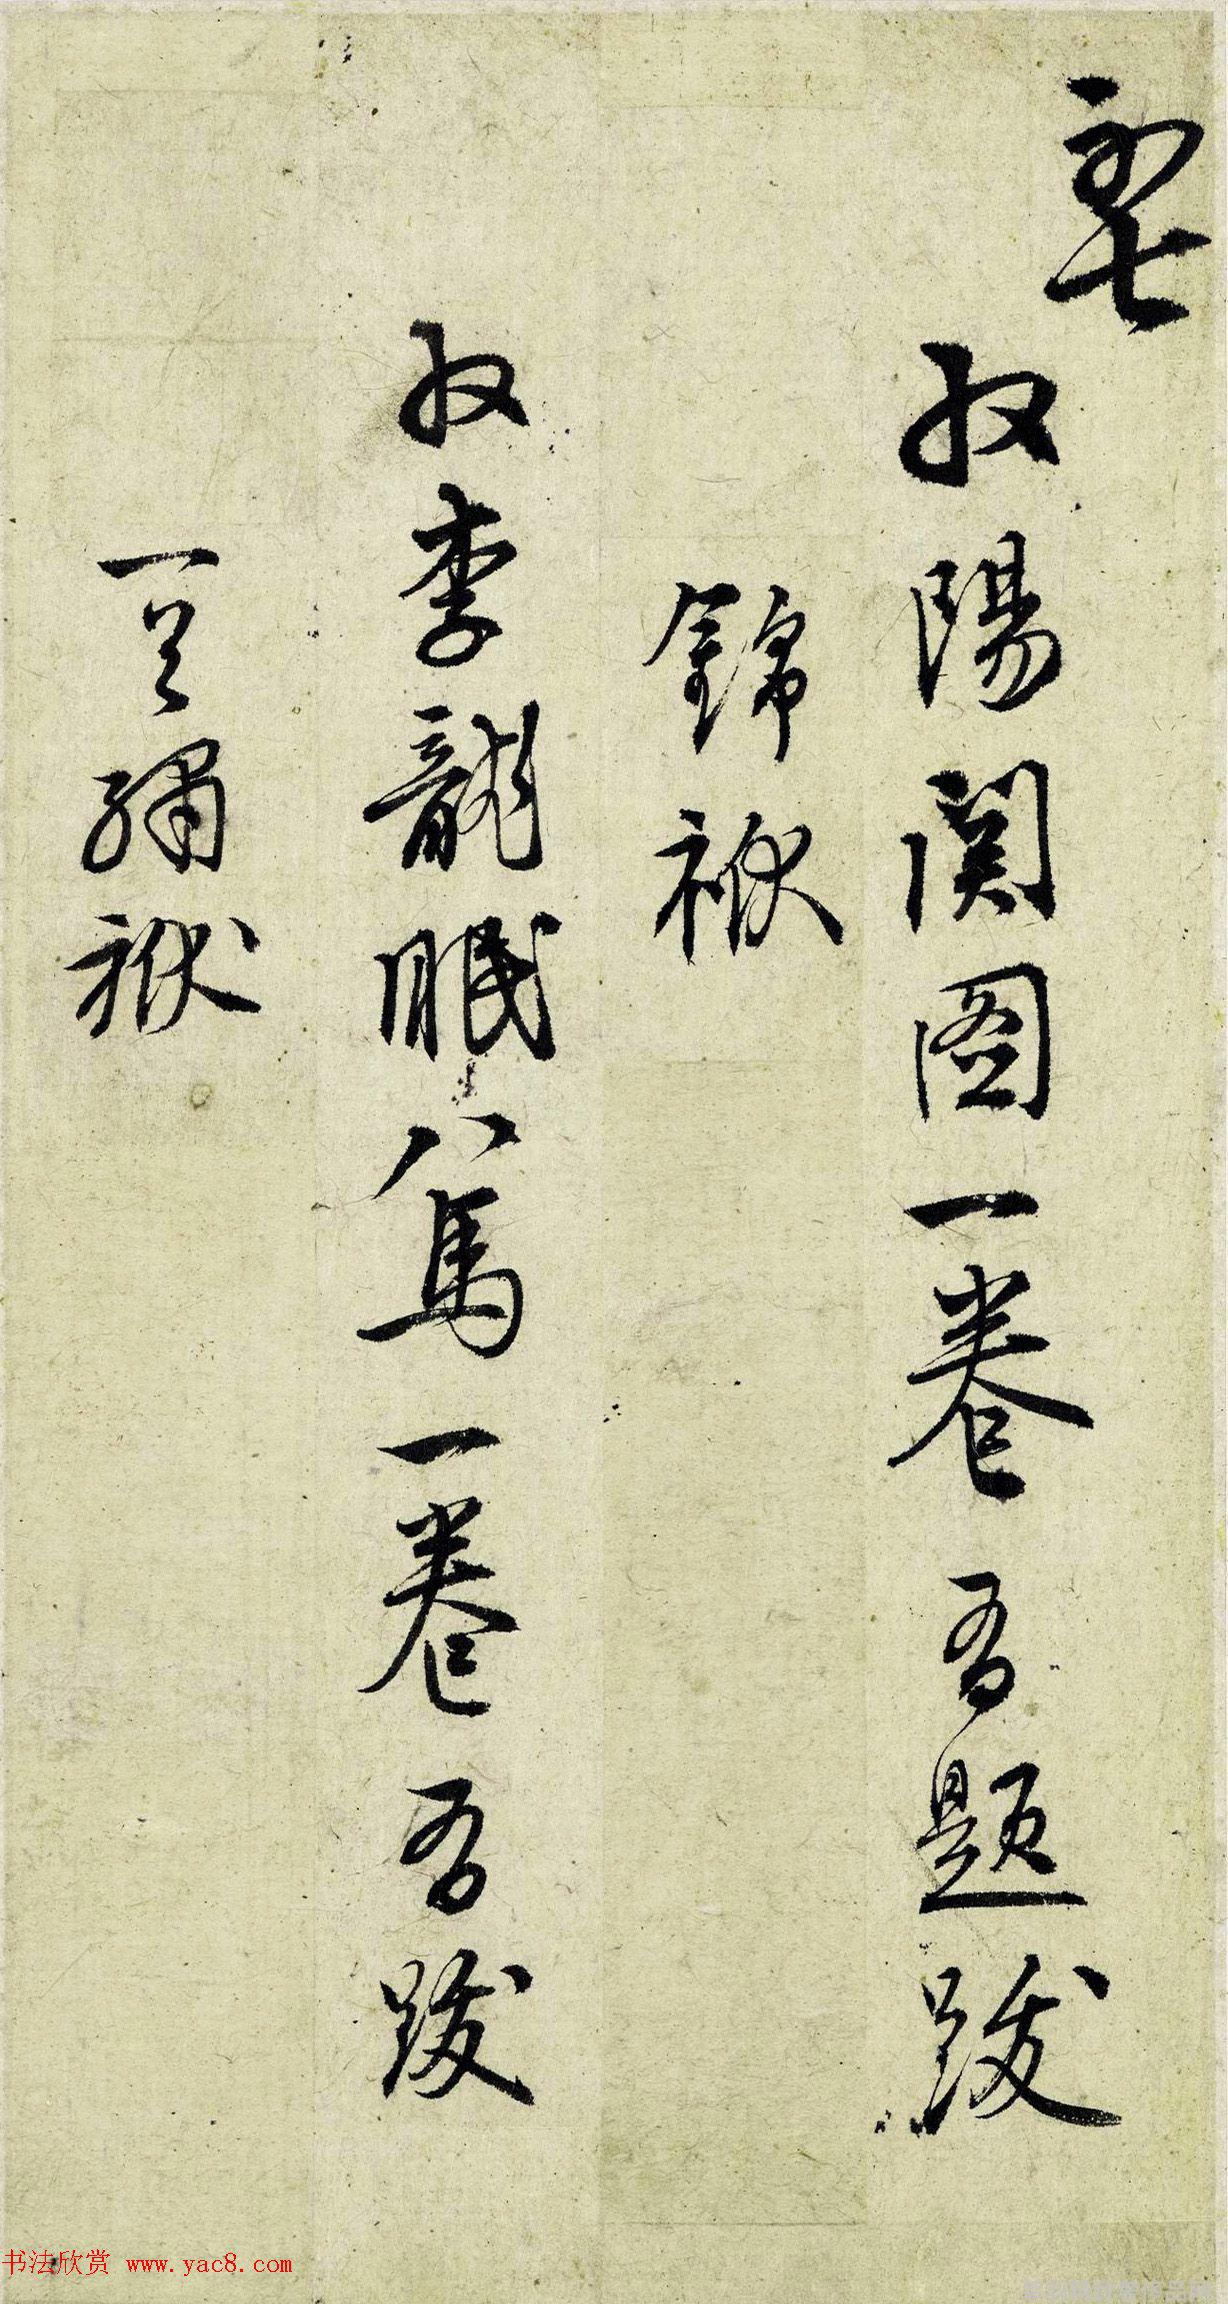 初七
收陽関圖一卷 吾題跋
錦袱
收李龍眠八馬一卷 吾跋
繡袱
书法欣赏 www.yac8.com